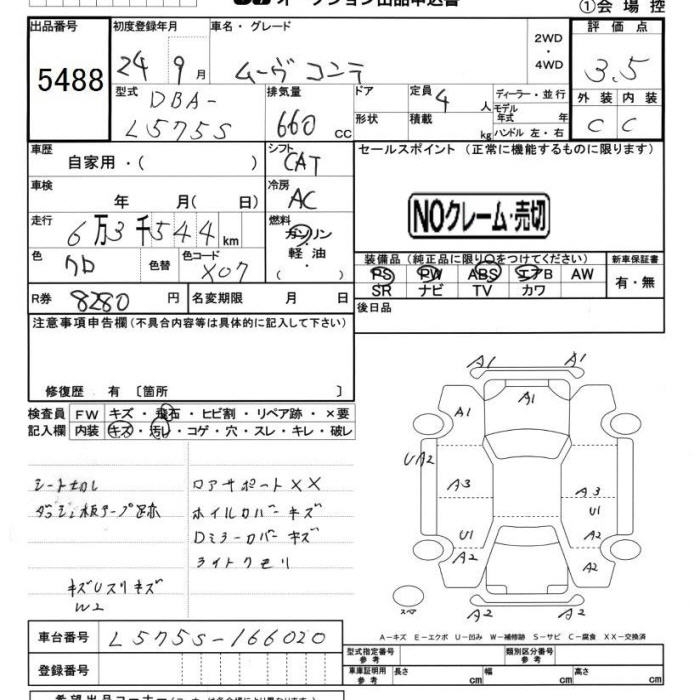 オークション出品申込書
①会場控
出品番号 初度登録年月 車名・グレード 評価点
5488
24年9月 ムーヴコンテ 2WD・4WD 3.5
型式 排気量 ドア 定員 4人 ディーラー・並行 外装 内装
DBA-
L575S 660cc 形状 積載 kg モデル年式 年 ハンドル 左・右 C C
車歴 シフト セールスポイント(正常に機能するものに限ります)
自家用・( ) CAT
車検 年 月( 日) 冷房 AC
NOクレーム・売切
走行 6万3千544km 燃料 ガソリン 軽油・( )
装備品(純正品に限り○をつけてください) 新車保証書
色 クロ 色替 色コード X07
PS PW ABS エアB AW 有・無
SR ナビ TV カワ
R券 8280円 名変期限 月 日 後日品
注意事項申告欄(不具合内容等は具体的に記入して下さい)
修復歴 有 〔箇所 〕
検査員 FW キズ・飛石・ヒビ割・リペア跡・×要
記入欄 内装 キズ・汚レ・コゲ・穴・スレ・キレ・破レ
ロアサポートXX
ホイルカバーキズ
Dミラーカバーキズ
ライトクモリ
W2
A1 A1
A1 A1
UA2
A3 A3
U1
U1 A2
A2 A2
A2 A2
スペア
A-キズ E-エクボ U-凹み W-補修跡 S-サビ C-腐食 XX-交換済
車台番号 L575S-166020
型式指定番号 参考 類別区分番号 参考
登録番号
車庫証明用 参考 長さ cm 幅 cm 高さ cm